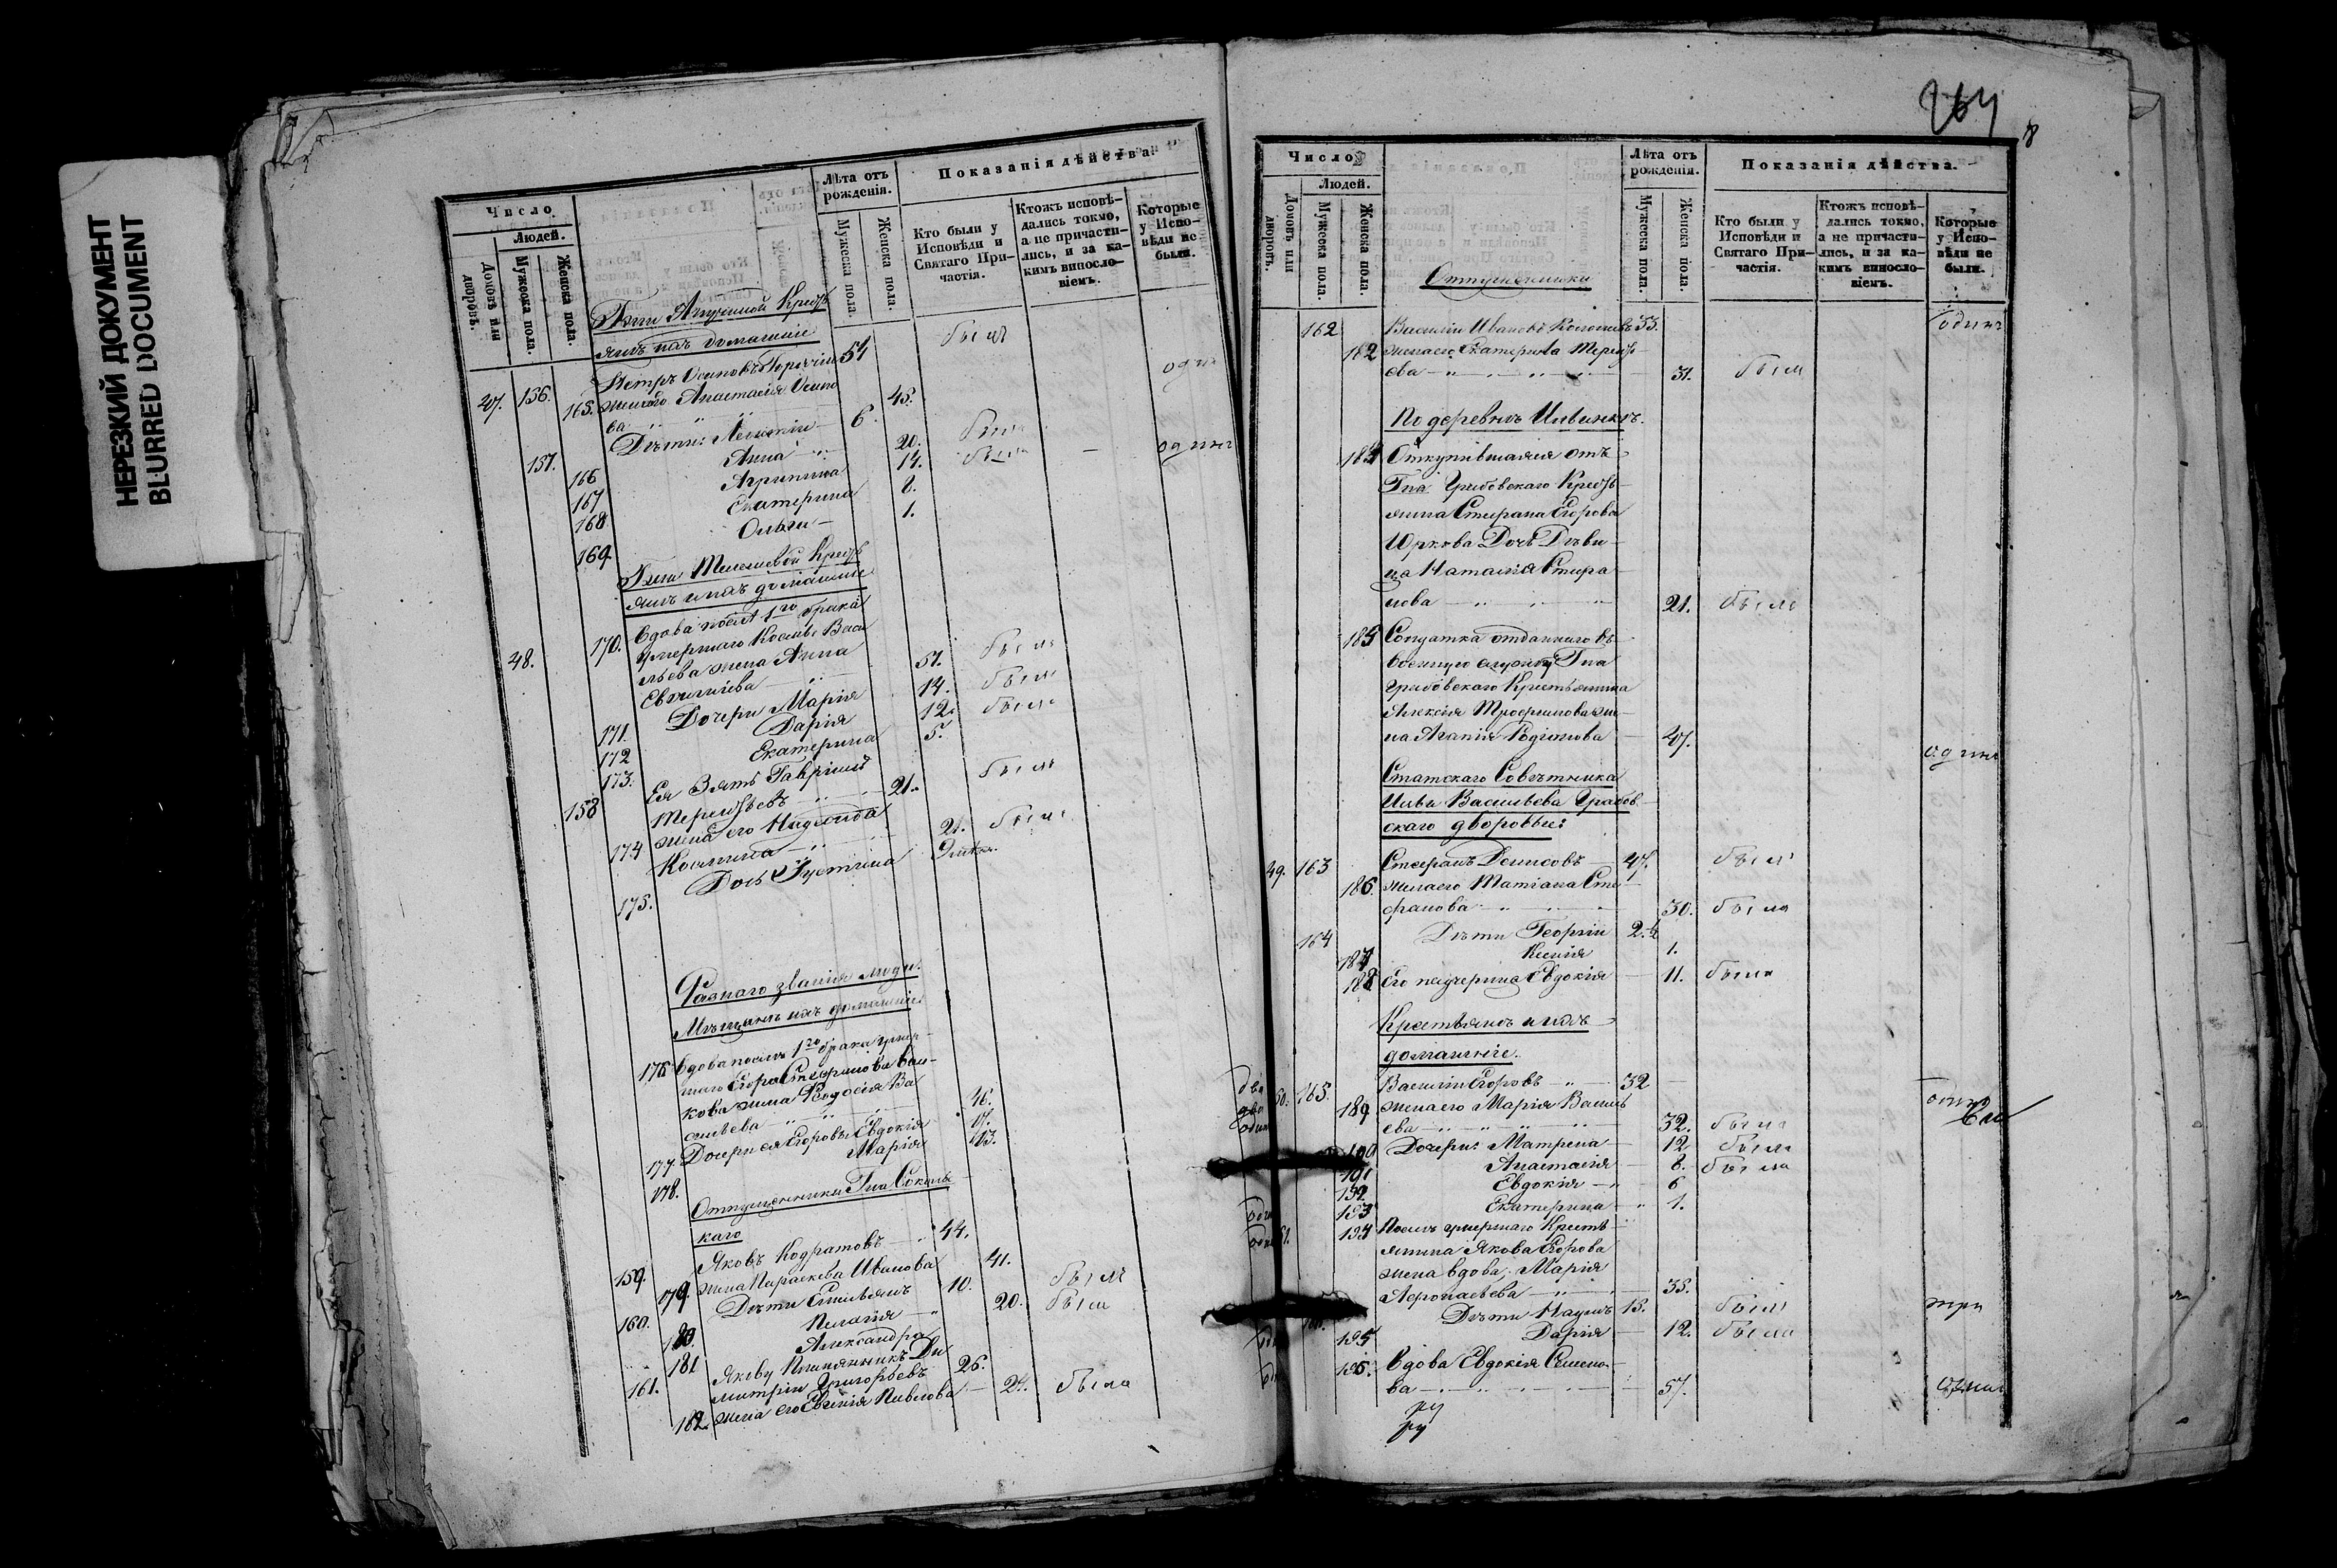 НЕРЕЗКИЙ ДОКУМЕНТ
BLURRED DOCUMENT
Число
Людей.
Домовъ или дворовъ.
Мужеска пола.
Женска пола.
Лѣта отъ рожденія.
Мужеска пола.
Женска пола.
Показанія дѣйства.
Кто были у Исповѣди и Святаго Причастія.
Ктожъ исповѣдались токмо, а не причастились, и за какимъ винословіемъ.
Которые у Исповѣди не были.
Гжи Крестья
янъ ихъ домашнія
156. Петръ Осиповъ 51 былъ
165. жена его Анастасія Осипо
ва 45. одна
157. Дѣти: 6.
166 Анна 20. была
167 Агрипина 14. была
168 Екатерина 8. одинъ
169. Ольга 1.
Гжи Крестья
янъ и ихъ домашнія
48. 170. Вдова послѣ 1го брака
умершаго Козьмы Васи
льева жена Анна
57. была
171. Дочери Марія 14. была
172 Дарія 12. была
173. Екатерина 5.
158 Ея Зять Гаврiилъ
Терентьевъ 21. былъ
174 жена его
Козмина 21. была
175. Дочь Густина
Разнаго званія люди.
Мѣщанъ ихъ домашніе
176 Вдова послѣ 1го брака умер
шаго Егора Стефанова
кова жена Ѳеодосія Ва
сильева 46.
177. Дочери ея Егоровы Евдокія 17.
178. Марія 13.
Отпущенники Гна Соколь
каго
159. Яковъ Кодратовъ 44.
179. жена Параскева Иванова 41.
160. Дѣти Емильянъ 10. былъ
180. Пелагія 20. была
181 Александра
161. Якову Племянникъ Ди
митрій Григорьевъ 26.
182. жена его Евгенія Павлова 24. была
264
Число
Людей.
Домовъ или дворовъ.
Мужеска пола.
Женска пола.
Лѣта отъ рожденія.
Мужеска пола.
Женска пола.
Показанія дѣйства.
Кто были у Исповѣди и Святаго Причастія.
Ктожъ исповѣдались токмо, а не причастились, и за какимъ винословіемъ.
Которые у Исповѣди не были.
Отпущенники
162 Василій Ивановъ 33. одинъ
182 жена его Екатерина Теренть
ева 31. была
По деревнѣ Ильинкѣ.
184 Откупившаяся отъ
Гна Грибовскаго Кресть
янина Стефана Егорова
Юркова Дочь Дѣви
ца Наталія Стефа
нова 21. была
185 Солдатка отданнаго въ
военную службу Гна
Грибовскаго Крестьянина
Алексія Трофимова же
на Агапія Родіонова 47. одинъ
Статскаго Совѣтника
Ильи Васильева Грибов
скаго дворовые:
49. 163 Стефанъ Денисовъ 47. былъ
186. жена его Татіана Сте
фанова 30. была
164 Дѣти Георгій 2.
187 Ксенія 1.
188 Его падчерица Евдокія 11. была
Крестьянъ и ихъ
домашніе.
50. 165. Василій Егоровъ 32
189. жена его Марія Василь
ева 32. была
190 Дочери: Матрена 12 была
191 Анастасія 8. была
192 Евдокія 6
193 Екатерина 1.
51. 194 Послѣ умершаго Кресть
янина Якова Егорова
жена вдова, Марія
Аѳонасьева 35.
Дѣти Наумъ 15. былъ три
195 Дарія 12. была
196. Вдова Евдокія Семено
ва 57. одинъ